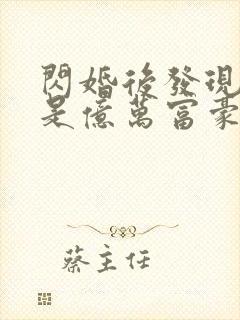 閃婚後發現
是億萬富豪
蔡主任